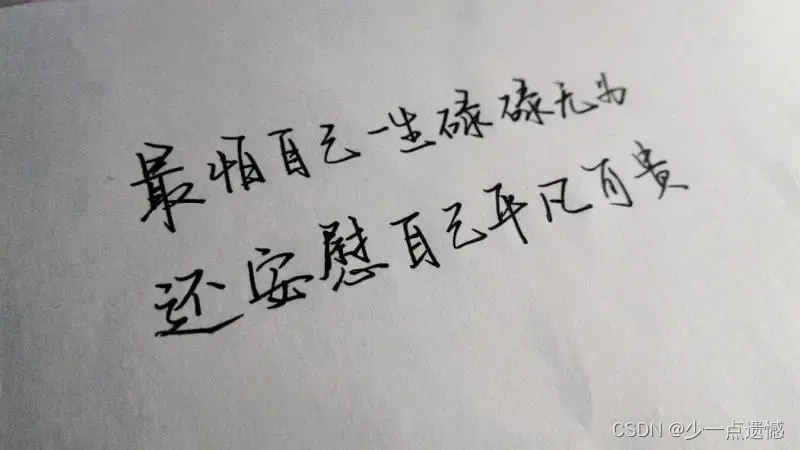 最怕自己一生碌碌无为
还安慰自己平凡可贵
CSDN @少一点遗憾